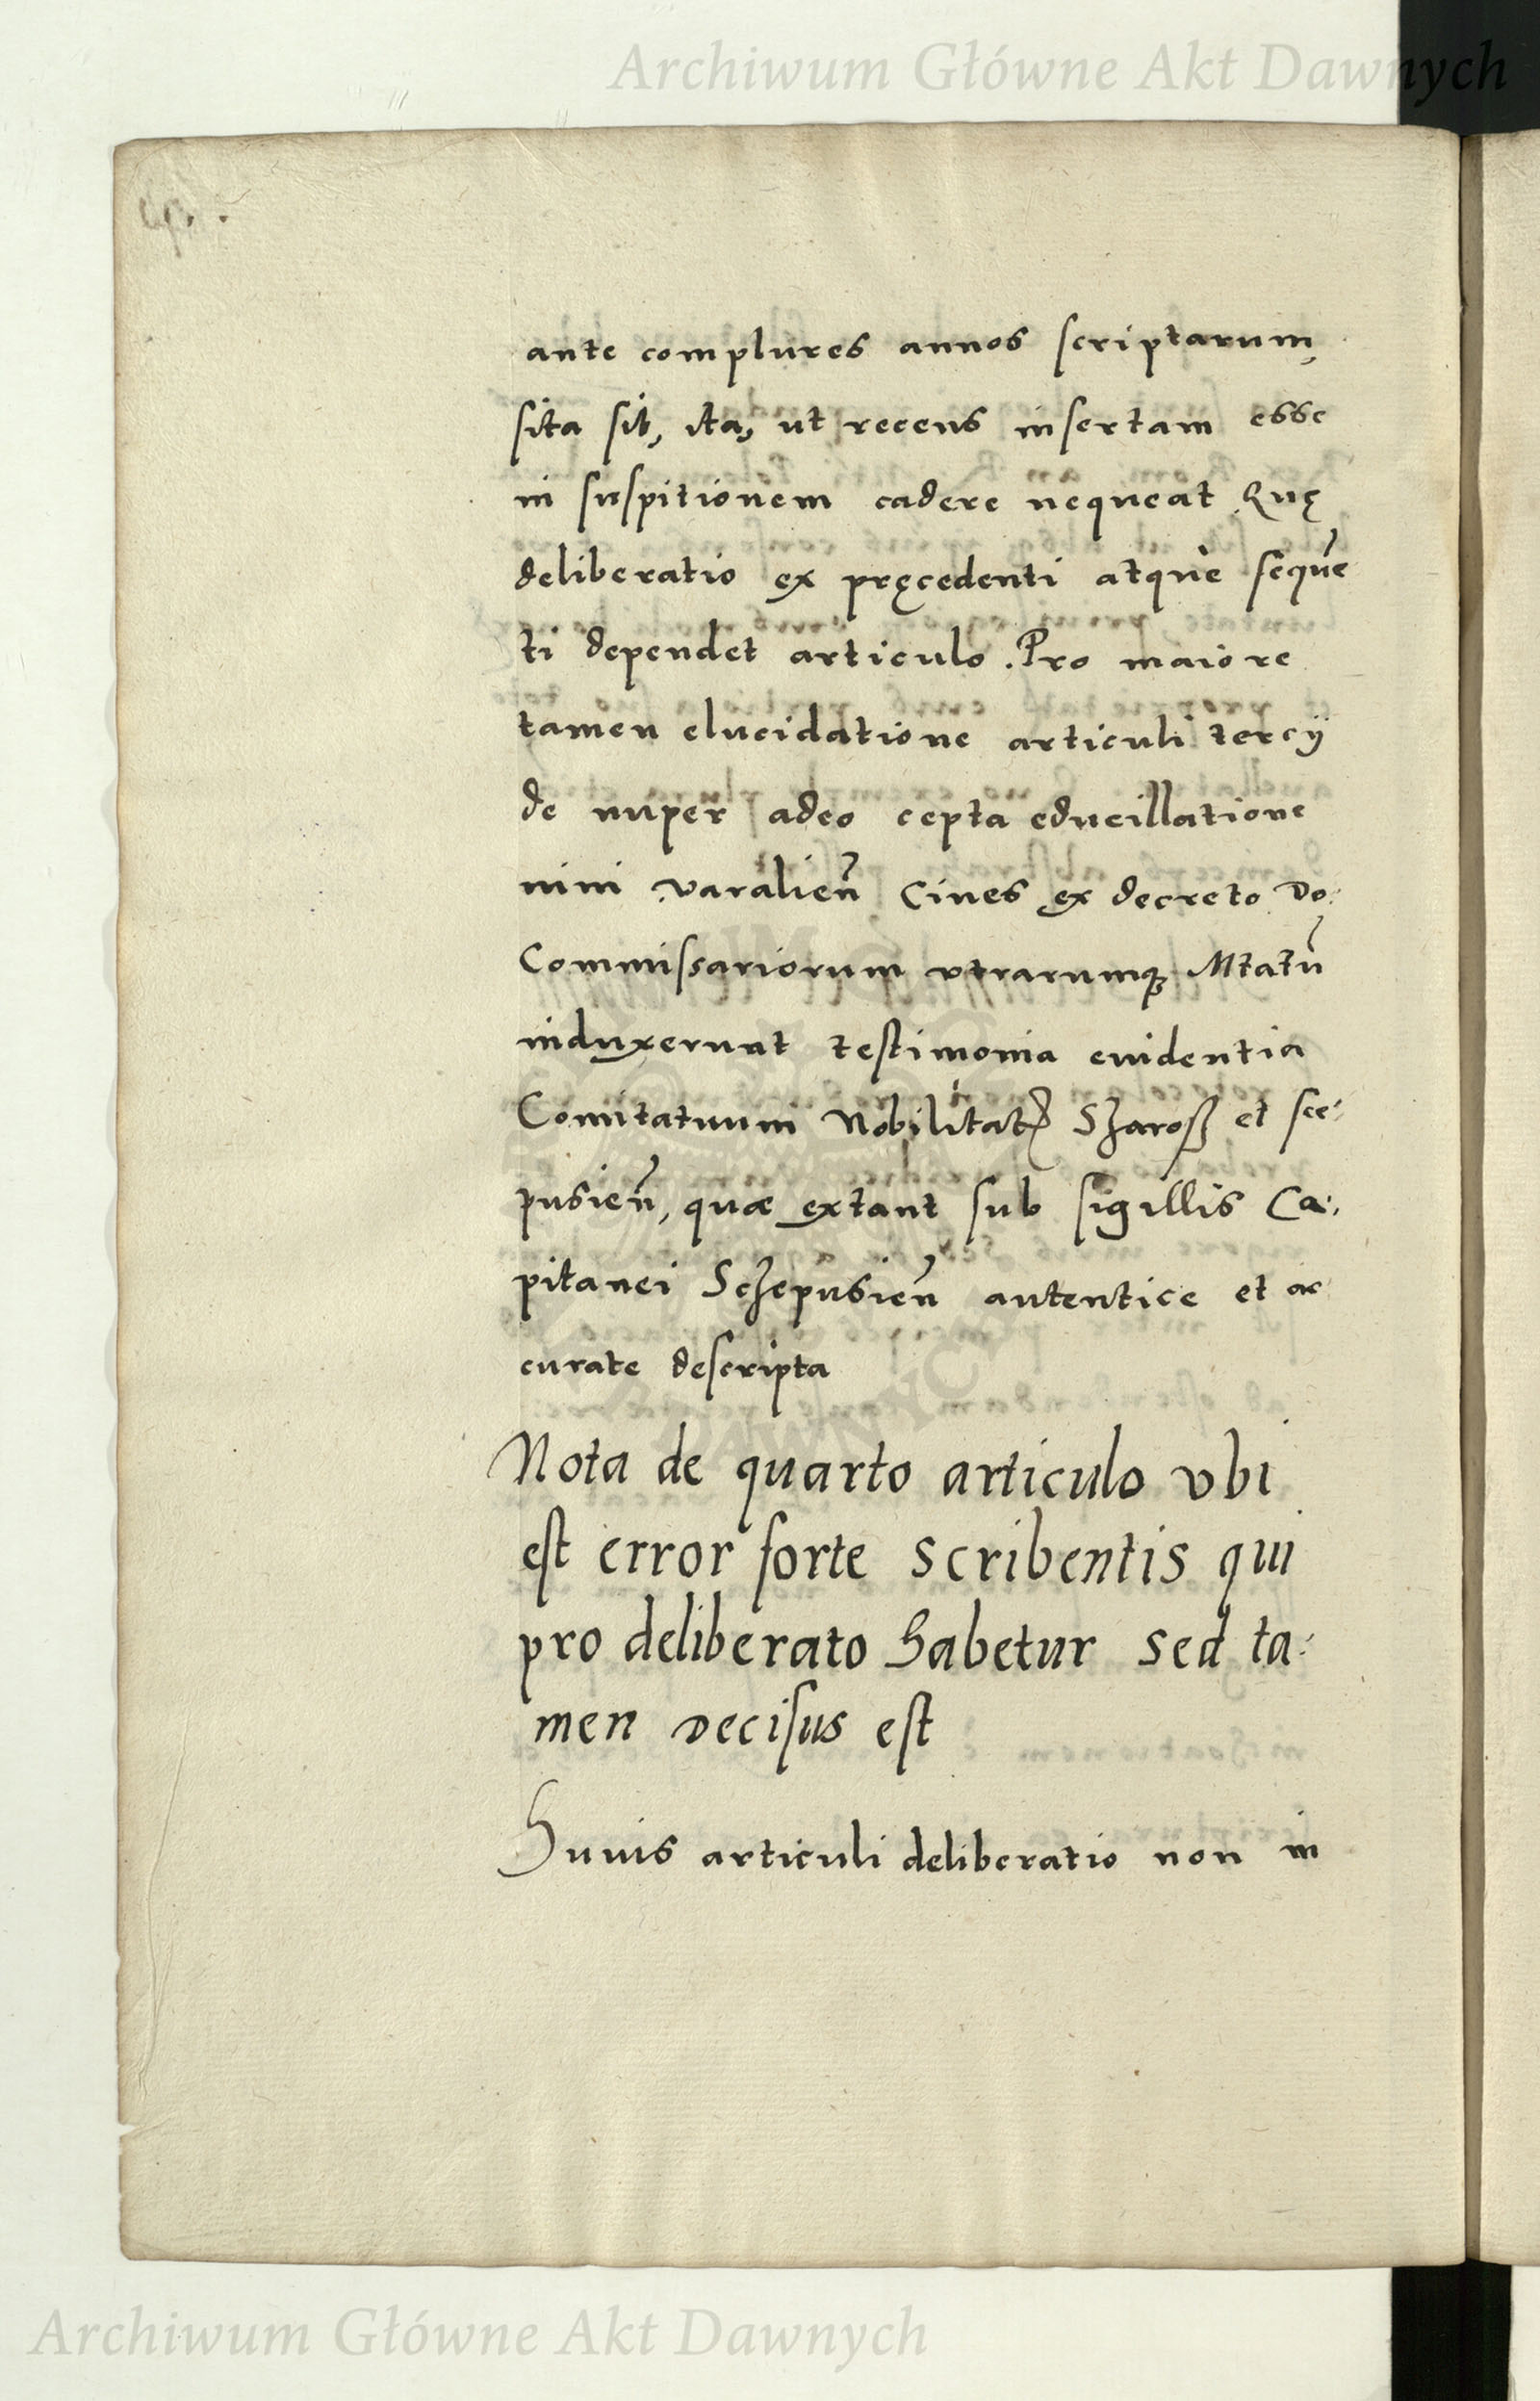 Archiwum Główne Akt Dawnych
ante complures annos scriptarum,
sita sit, ita, ut recens insertam esse
in suspitionem cadere nequeat Quę
deliberatio ex pręcedenti atque sequē
ti dependet articulo. Pro maiore
tamen elucidatione articuli tercij
de nuper adeo cepta educillatione
vini Varalień Ciues ex decreto Do:
Commissariorum vtrarumq; Mtatū
induxerunt testimonia euidentia
Comitatuum Nobilitat Szaroß et sce:
pusień, quæ extant sub sigillis Ca:
pitanei Sczepusień autentice et ac
curate descripta
Nota de quarto articulo vbi
est error forte scribentis qui
pro deliberato habetur sed ta:
men decisus est
Huius articuli deliberatio non in
Archiwum Główne Akt Dawnych